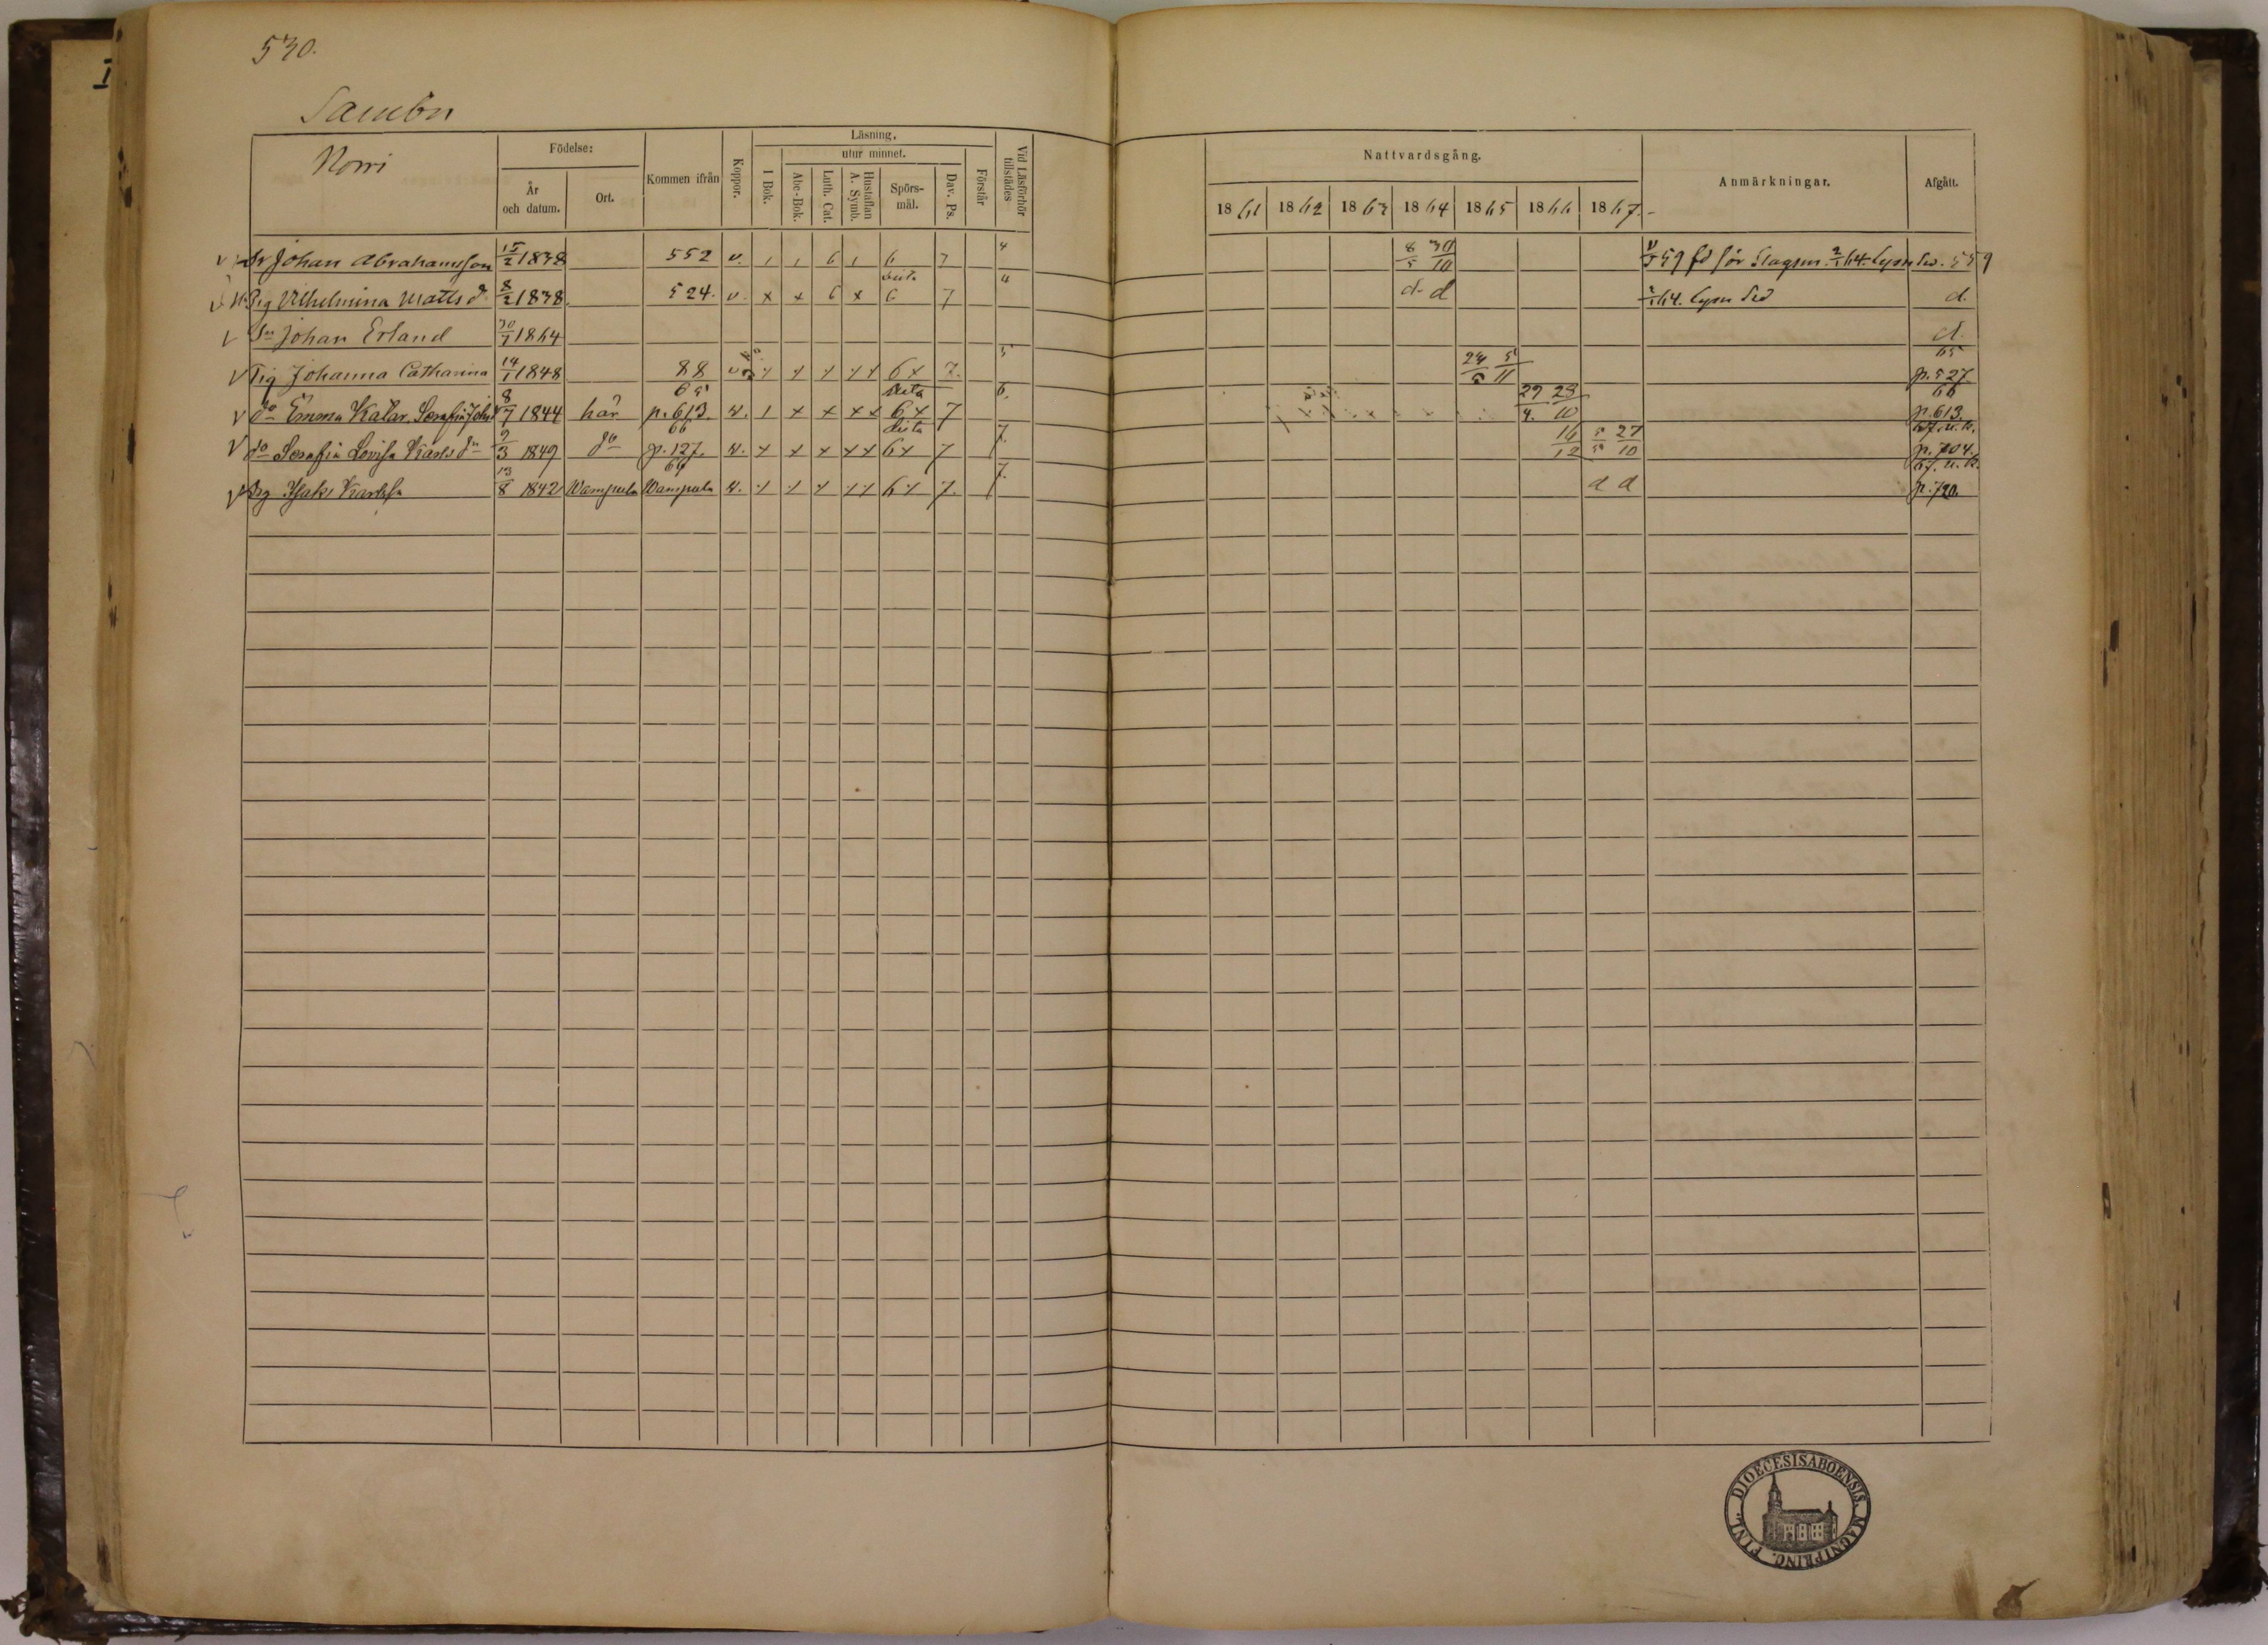 530.
I
Sambu
Norri
Födelse:
År och datum.
Ort.
Kommen ifrån
Koppor.
Läsning,
I Bok.
utur minnet.
Abc-Bok.
Luth. Cat.
Hustaflan A. Symb.
Spörs-mål.
Dav. Ps.
Förstår
Vid Läsförhör tillstädes
Nattvardsgång.
1861 1862 1863 1864 1865 1866 1867.
Anmärkningar.
Afgått.
Dr Johan Abrahamsson 15/2 1838 552 v. 1 1 6 1 6 7 4 8/5 30/10 59 för 2/1 64. Lysn 559
Pig Vilhelmina Matts d. 8/2 1838 524. v. x x 6 x 6 7 4 d. d 2/1 64. Lysn d.
Sn Johan Erland 30/7 1864 d.
Pig Johanna Catharina 14/1 1848 88 v 6 x 7. 5 24/5 5/11 65 p. 527.
do Emma Katar. Serafia 8/7 1844 här 65 p. 613. w. 1 x x x x 6 x 7 6. 29/4. 28/10 66 p. 613.
do Serafia Lovisa Karls dr 9/3 1849 do 66 p. 127. w. x x x x x 6 x 7 7. 16/12 5/5 27/10 67. u. k. p. 704.
Dg Isak Karlss. 13/8 1842 Wampula Wampula w. 6 7. 7. d d 67. u. k. p. 720.
DIOECESIS ABOENSIS. MAGNI PRINC. FINL.